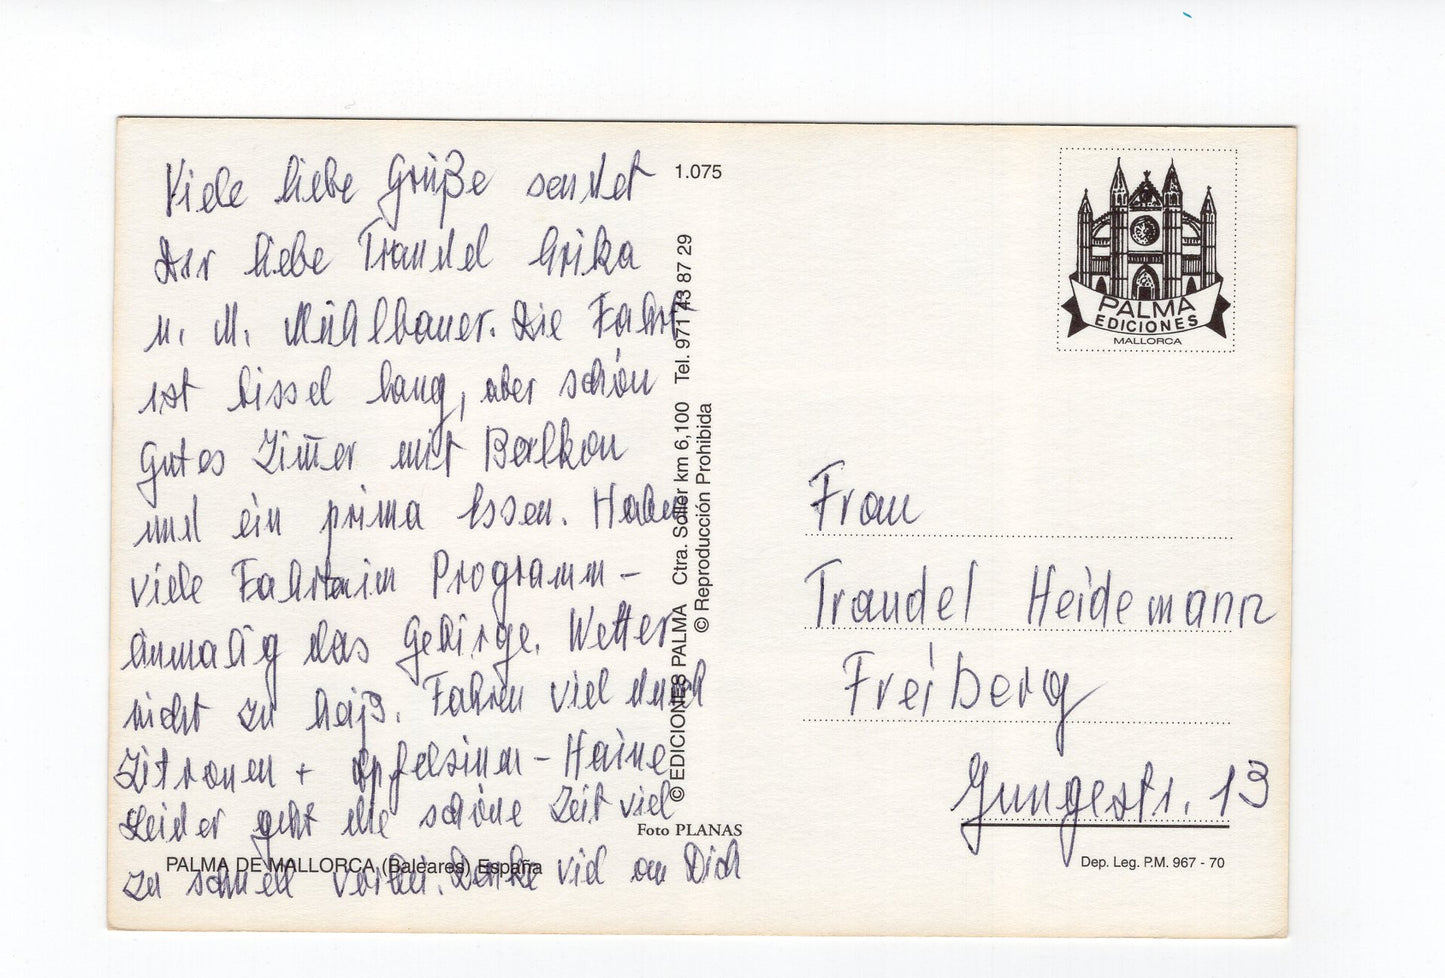 Viele liebe Grüße sendet
Dir liebe Traudel Erika
u. M. Mühlbauer. Die Fahrt
ist bissel lang, aber schön
Gutes Zim̅er mit Balkon
und ein prima Essen. Haben
viele Fahrten im Programm –
einmalig das Gebirge. Wetter
nicht zu heiß. Fahren viel durch
Zitronen + Apfelsinen – Haine
Leider geht die schöne Zeit viel
zu schnell vorbei. Denke viel an Dich
PALMA DE MALLORCA (Baleares) España
1.075
© EDICIONES PALMA Ctra. Sóller km 6,100 Tel. 971 43 87 29
© Reproducción Prohibida
Foto PLANAS
PALMA
EDICIONES
MALLORCA
Frau
Traudel Heidemann
Freiberg
Jungestr. 13
Dep. Leg. P.M. 967 - 70